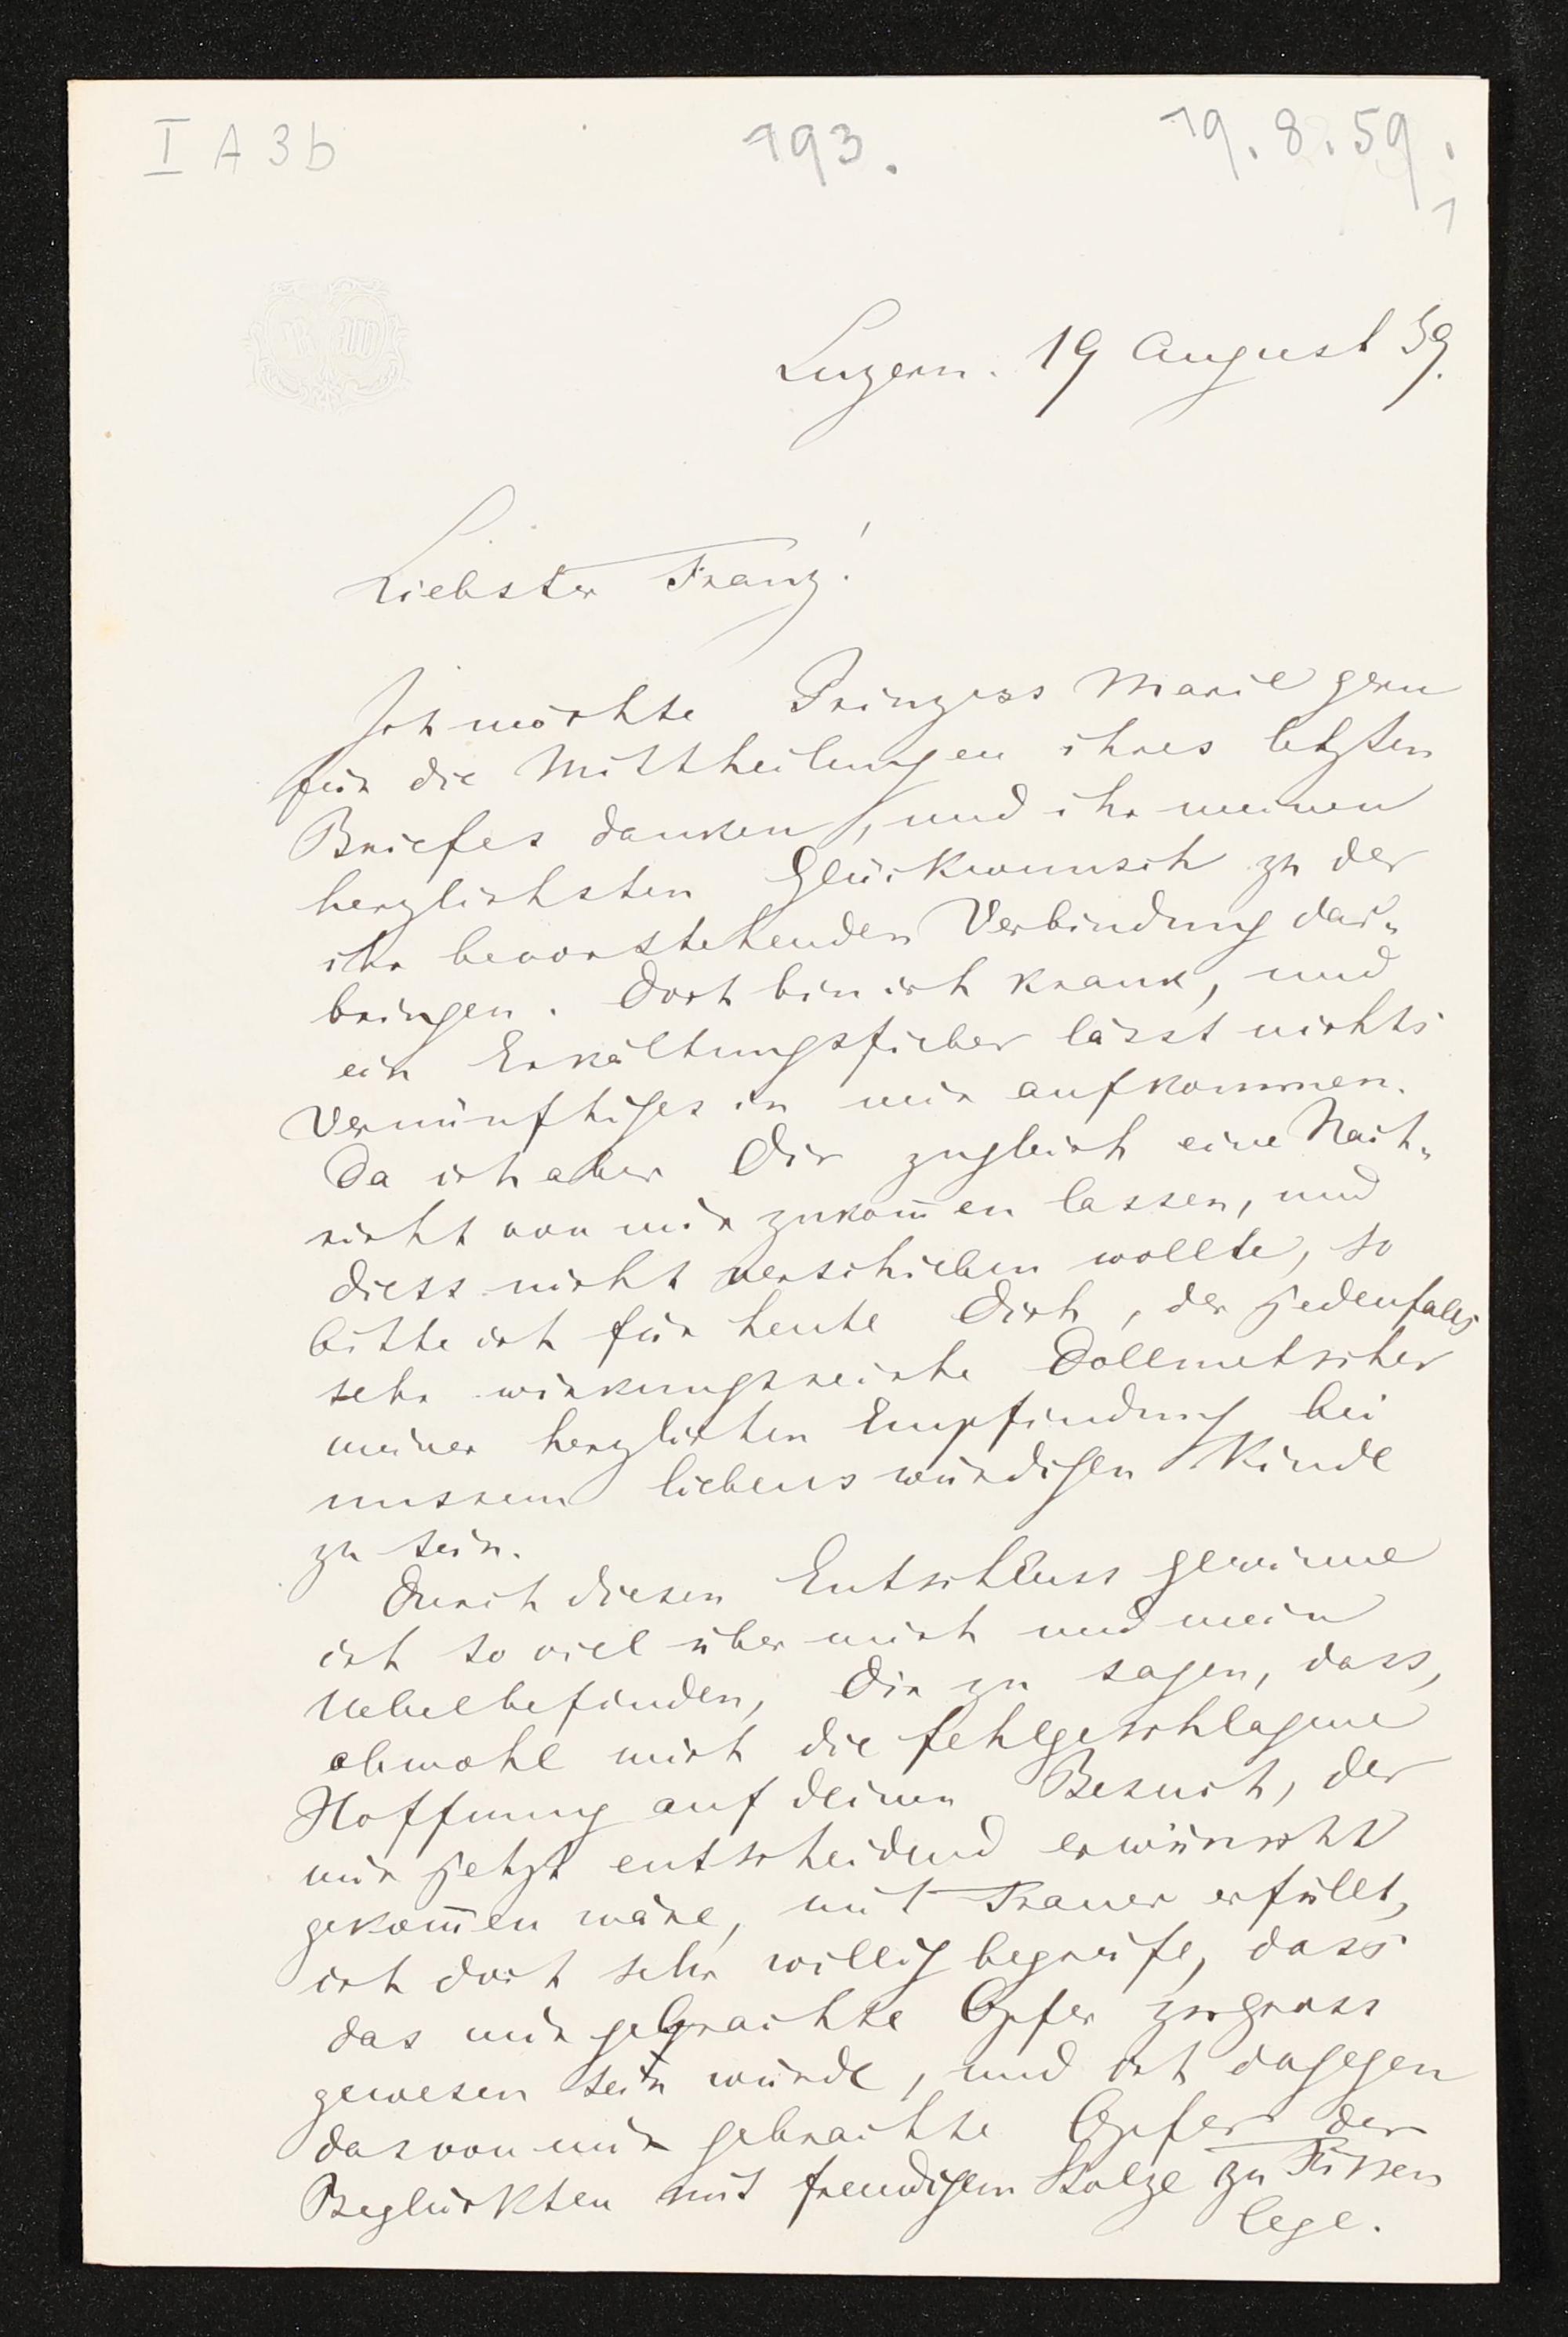 I A 3 b 193. 19. 8. 59.
1
Luzern. 19 August 59.
Liebster Franz!
Ich möchte Prinzess Marie gern
für die Mittheilungen ihres letzten
Briefes danken, und ihr meinen
herzlichsten Glückwunsch zu der
ihr bevorstehenden Verbindung dar„
bringen. Doch bin ich krank, und
ein Erkältungsfieber lässt nichts
Vernünftiges in mir aufkommen.
Da ich aber Dir zugleich eine Nach„
richt von mir zukom̄en lassen, und
diess nicht verschieben wollte, so
bitte ich für heute Dich, der jedenfalls
sehr wirkungsreiche Dollmetscher
meiner herzlichen Empfindung bei
unsrem liebenswürdigen Kinde
zu sein.
Durch diesen Entschluss gewinne
ich so viel über mich und mein
Uebelbefinden, Dir zu sagen, dass,
obwohl mich die fehlgeschlagene
Hoffnung auf deinen Besuch, der
mir jetzt entscheidend erwünscht
gekom̄en wäre, mit Trauer erfüllt,
ich doch sehr willig begreife, dass
das mir gebrachte Opfer zu gross
gewesen sein würde, und ich dagegen
das von mir gebrachte Opfer der
Beglückten mit freudigem Stolze zu Füssen
lege.